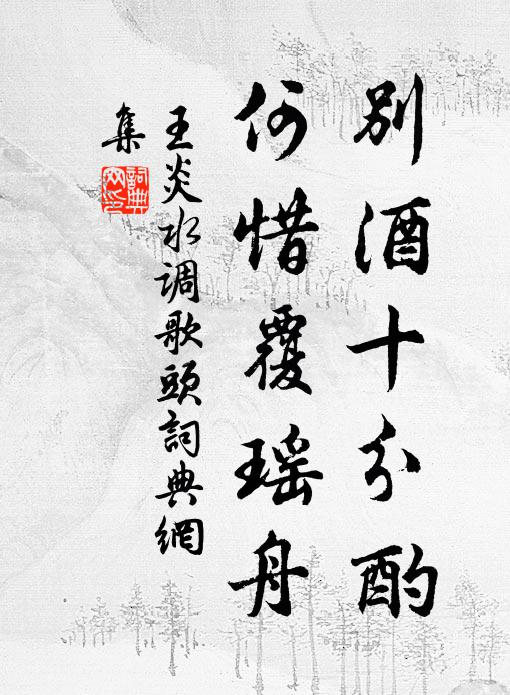 别酒十分酌
何惜覆瑶舟
王炎水调歌頭詞典網
集
詞典
网印